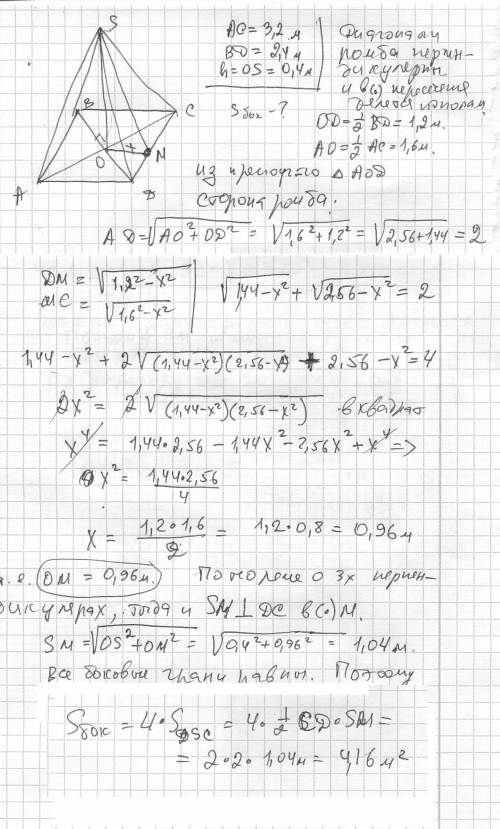 S
B
C
O
x
M
A
D
AC = 3,2 м
BD = 2,4 м
h = OS = 0,4 м
Sбок - ?
Диагонали
ромба перпен-
дикулярн
и в (·) пересечения
делятся пополам
OD = 1/2 BD = 1,2 м.
AO = 1/2 AC = 1,6 м.
из прямоуг-го △ AOD
сторона ромба.
AD = √(AO² + OD²) = √(1,6² + 1,2²) = √(2,56 + 1,44) = 2
DM = √(1,2² - x²)
MC = √(1,6² - x²)
√(1,44 - x²) + √(2,56 - x²) = 2
1,44 - x² + 2√((1,44 - x²)(2,56 - x²)) + 2,56 - x² = 4
2x² = 2√((1,44 - x²)(2,56 - x²)) в квадрат
x⁴ = 1,44 · 2,56 - 1,44x² - 2,56x² + x⁴ =>
x² = 1,44 · 2,56 / 4
x = 1,2 · 1,6 / 2 = 1,2 · 0,8 = 0,96 м
т. е. OM = 0,96 м. По теореме о 3х перпен-
дикулярах, тогда и SM ⊥ DC в (·) M.
SM = √(OS² + OM²) = √(0,4² + 0,96²) = 1,04 м.
Все боковые грани равны. Поэтому
Sбок = 4 · S DSC = 4 · 1/2 CD · SM =
= 2 · 2 · 1,04 м = 4,16 м²